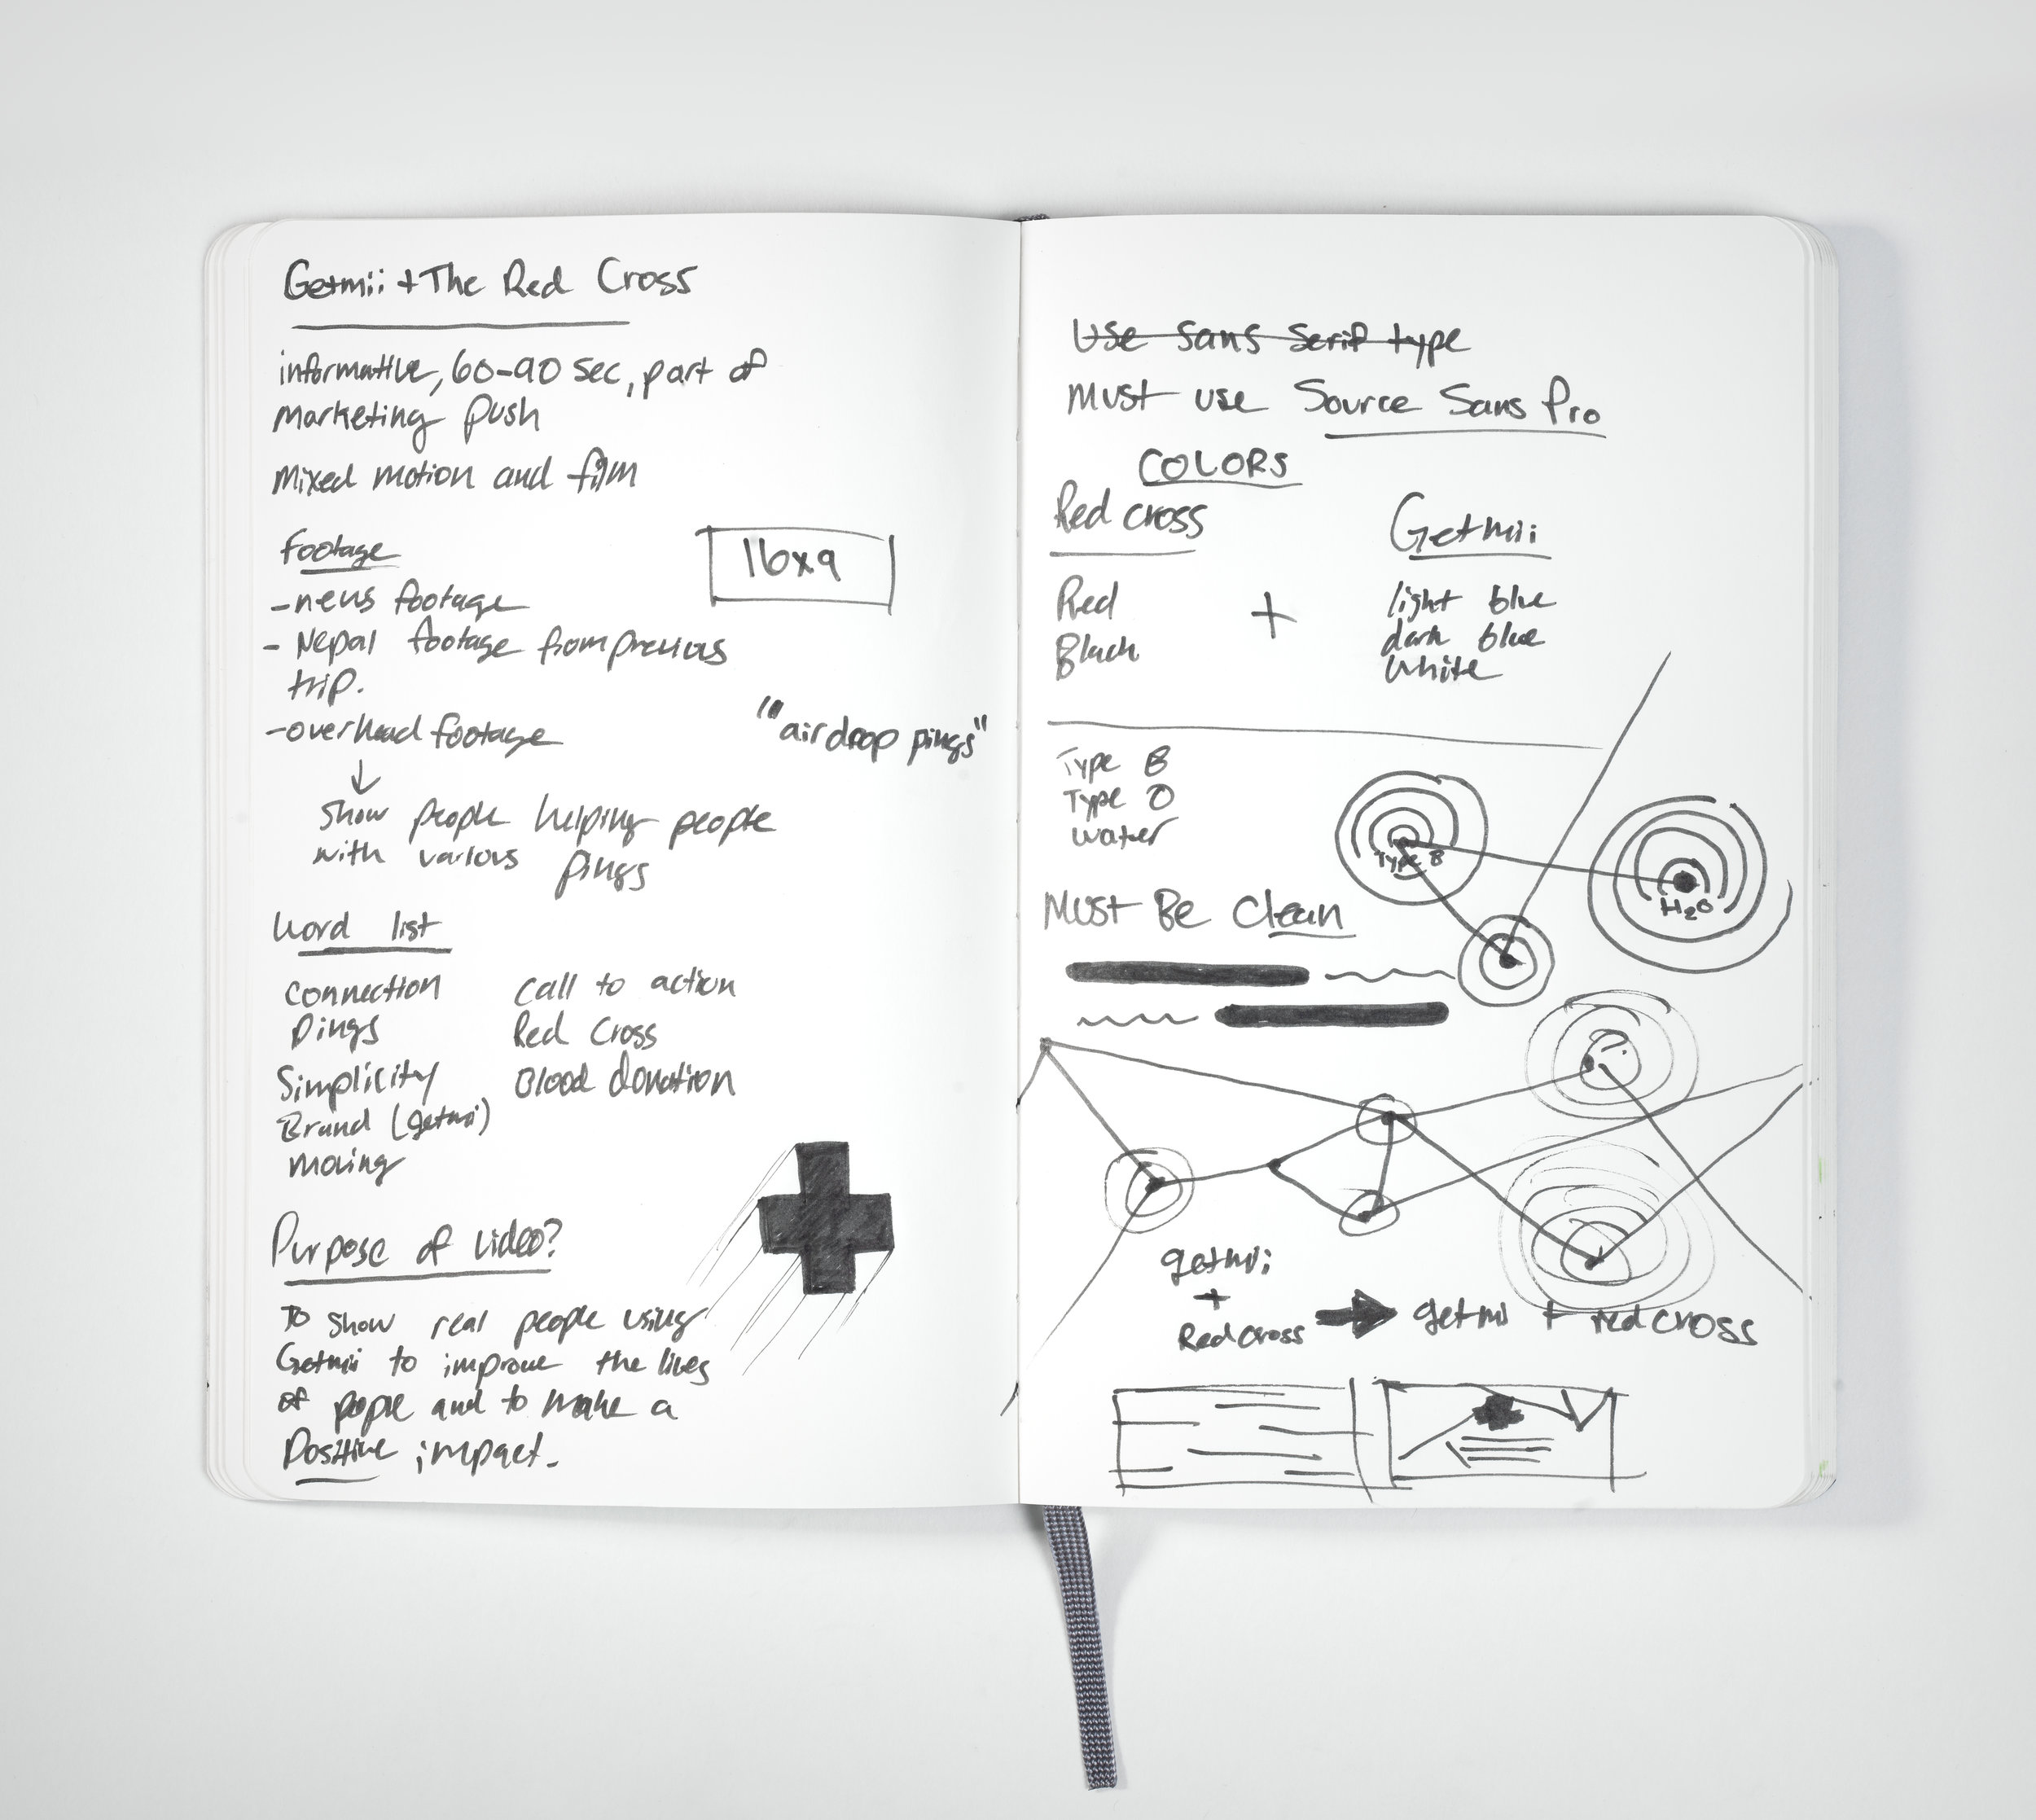 Getmii + The Red Cross
informative, 60-90 sec, part of
marketing push
mixed motion and film
footage
16x9
- news footage
- Nepal footage from previous
trip.
- overhead footage
"airdrop pings"
↓
show people helping people
with various pings
Word list
Connection
Pings
Simplicity
Brand (getmii)
moving
Call to action
Red Cross
Blood donation
Purpose of video?
To show real people using
Getmii to improve the lives
of people and to make a
Positive impact.
Use sans serif type
Must use Source Sans Pro
COLORS
Red cross
Red
Black
+
Getmii
light blue
dark blue
white
Type B
Type O
water
Type B
H2O
Must Be Clean
getmii
+
Red cross
getmii + red cross